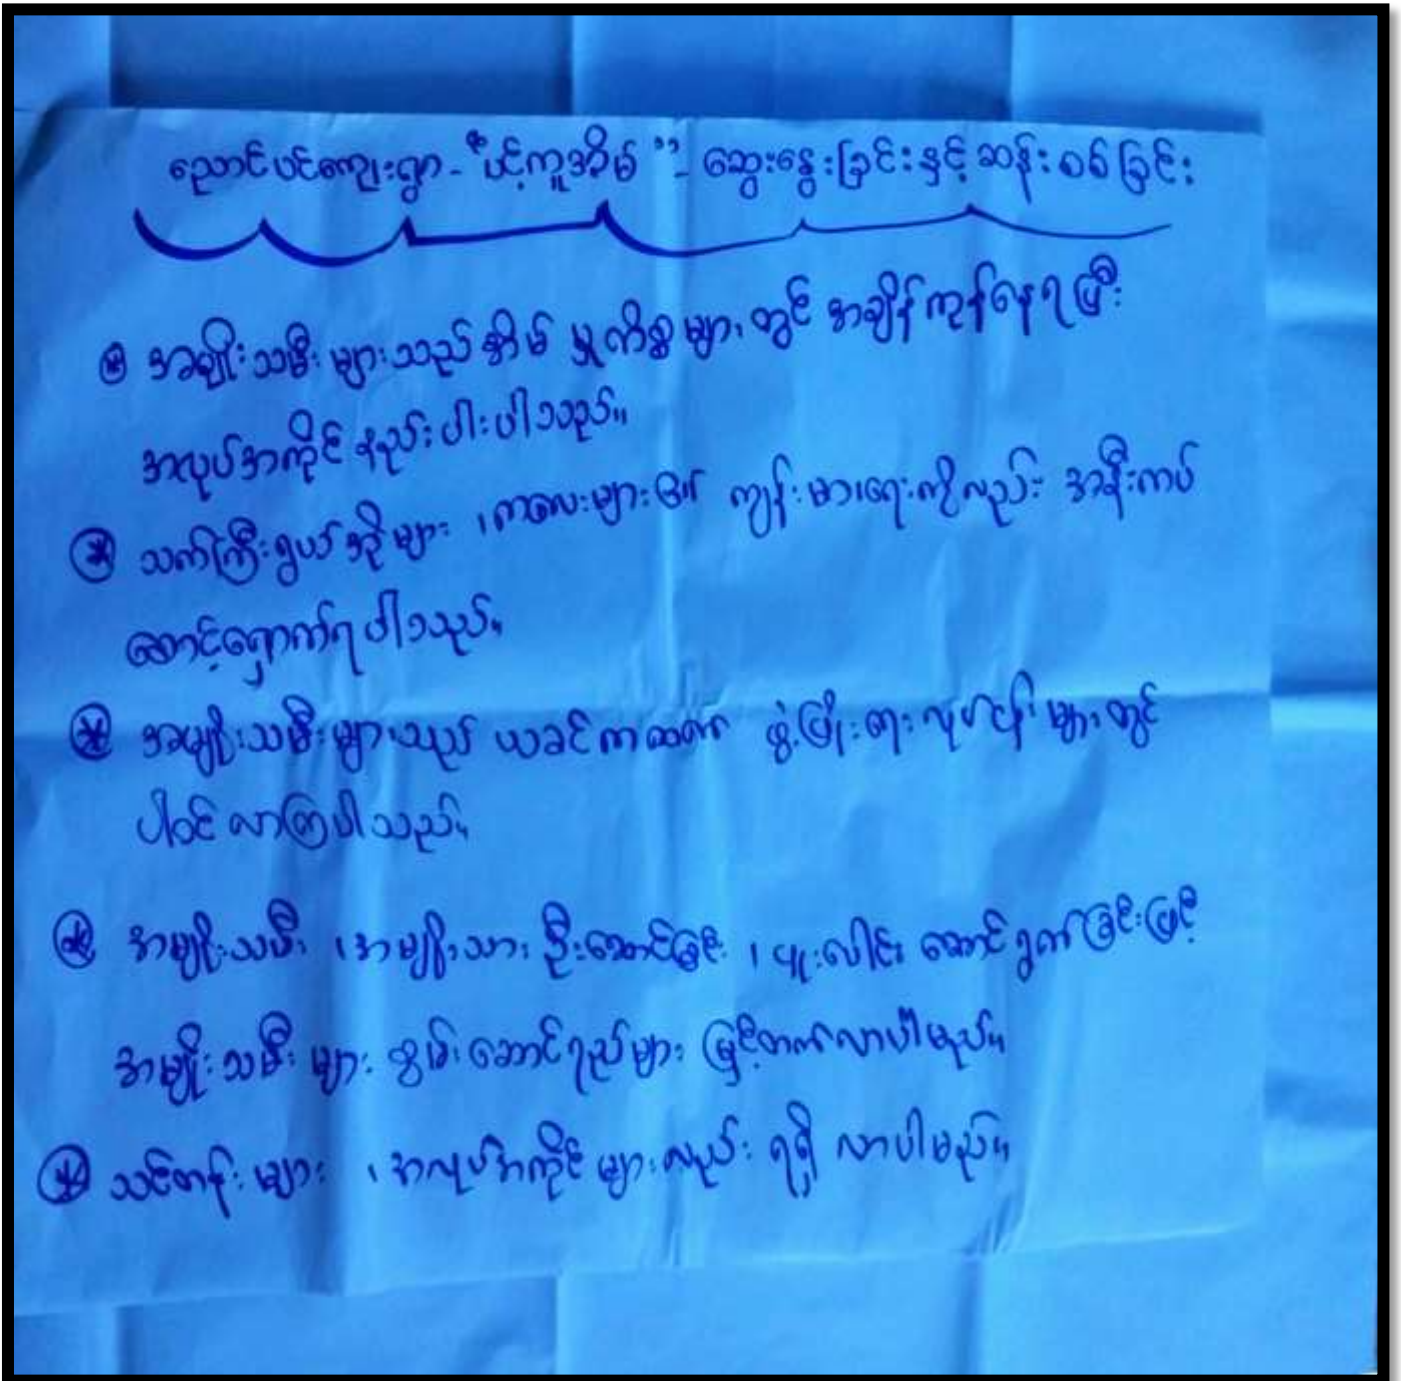 ညောင်ပင်ကျေးရွာ - "ပင့်ကူအိမ်" - ဆွေးနွေးခြင်းနှင့် ဆန်းစစ်ခြင်း
အမျိုးသမီးများသည် အိမ်မှုကိစ္စများတွင် အချိန်ကုန်နေရပြီး
အလုပ်အကိုင် နည်းပါးပါသည်။
သက်ကြီးရွယ်အိုများ ၊ ကလေးများ၏ ကျန်းမာရေးကိုလည်း အနီးကပ်
စောင့်ရှောက်ရပါသည်။
အမျိုးသမီးများသည် ယခင်ကထက် ဖွံ့ဖြိုးရေးလုပ်ငန်းများတွင်
ပါဝင်လာကြပါသည်။
အမျိုးသမီး ၊ အမျိုးသား ဦးဆောင်ခြင်း ၊ ပူးပေါင်း ဆောင်ရွက်ခြင်းဖြင့်
အမျိုးသမီးများ စွမ်းဆောင်ရည်များ မြှင့်တက်လာပါမည်။
သင်တန်းများ ၊ အလုပ်အကိုင်များလည်း ရရှိလာပါမည်။